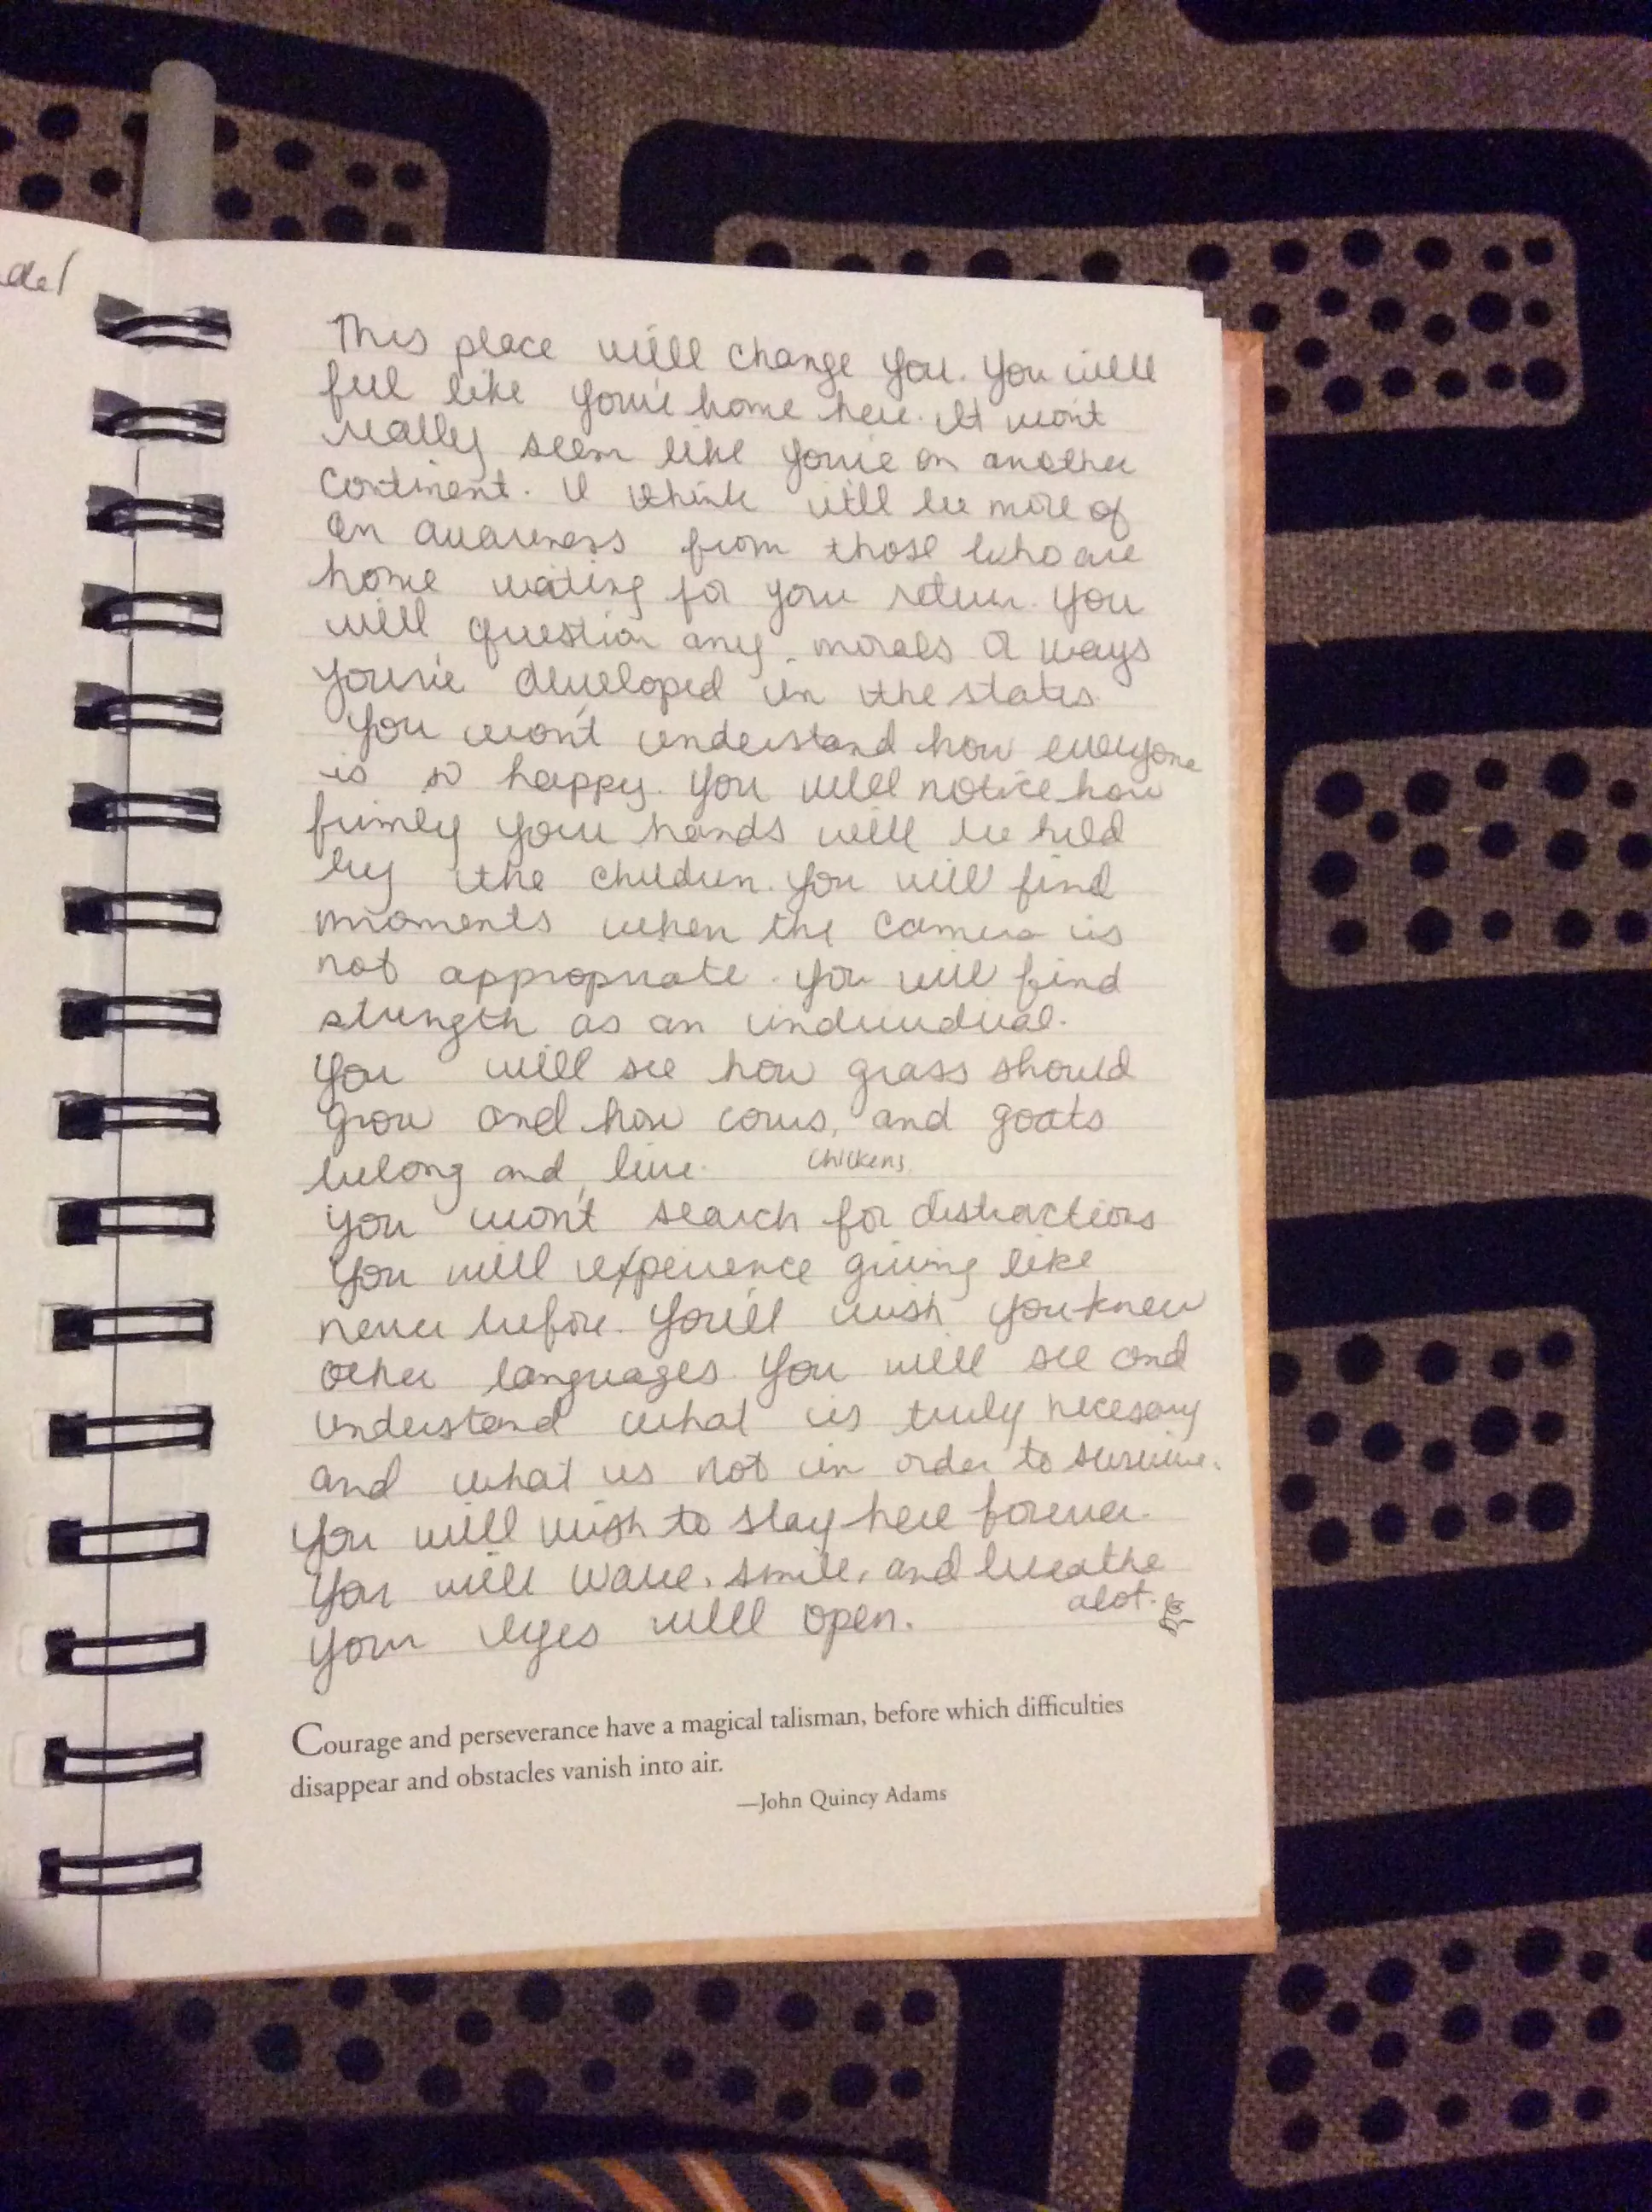 This place will change you. You will
feel like you're home here. It won't
really seem like you're on another
continent. I think it'll be more of
an awareness from those who are
home waiting for your return. You
will question any morals or ways
you've developed in the states.
You won't understand how everyone
is so happy. You will notice how
firmly your hands will be held
by the children. You will find
moments when the camera is
not appropriate. You will find
strength as an individual.
You will see how grass should
grow and how cows, and goats
chickens,
belong and live.
You won't search for distractions
You will experience giving like
never before. You'll wish you knew
other languages. You will see and
understand what is truly necesary
and what is not in order to survive.
You will wish to stay here forever.
You will wave, smile, and breathe
alot.
Your eyes will open.
Courage and perseverance have a magical talisman, before which difficulties
disappear and obstacles vanish into air.
—John Quincy Adams